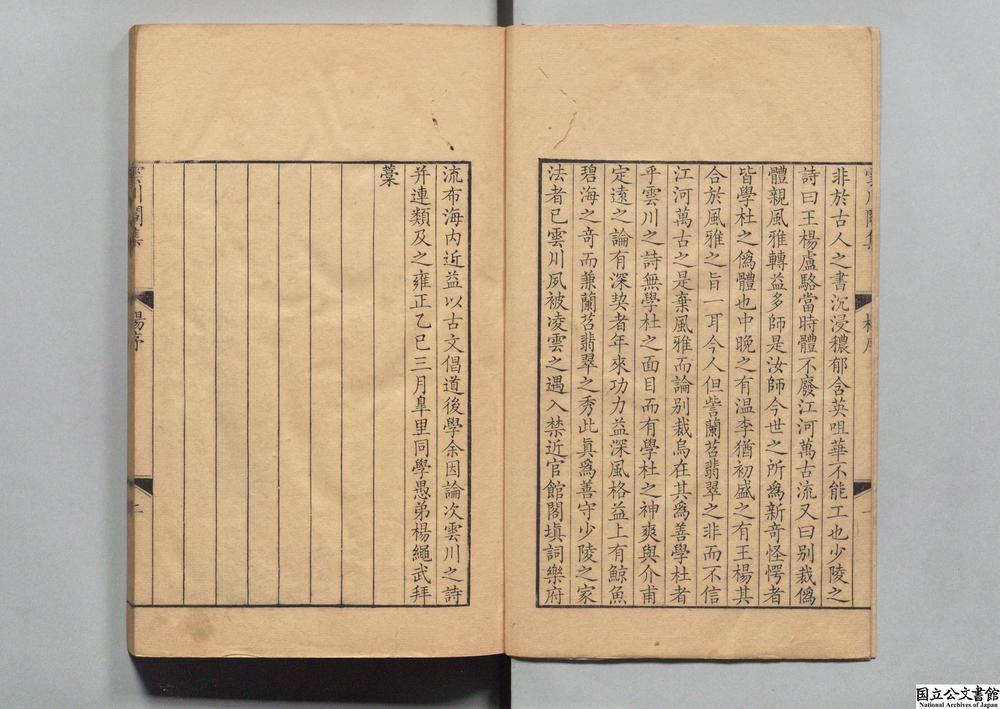 非於古人之書沉浸穠郁含英咀華不能工也少陵之
詩曰王楊盧駱當時體不廢江河萬古流又曰別裁僞
體親風雅轉益多師是汝師今世之所爲新奇怪愕者
皆學杜之僞體也中晚之有温李猶初盛之有王楊其
合於風雅之旨一耳今人但訾蘭苕翡翠之非而不信
江河萬古之是棄風雅而論別裁烏在其爲善學杜者
乎雲川之詩無學杜之面目而有學杜之神爽與介甫
定遠之論有深契者年來功力益深風格益上有鯨魚
碧海之奇而兼蘭苕翡翠之秀此眞爲善守少陵之家
法者已雲川夙被凌雲之遇入禁近官館閣塡詞樂府
流布海内近益以古文倡道後學余因論次雲川之詩
并連類及之雍正乙巳三月皐里同學愚弟楊繩武拜
藁
雲川閣集
楊序
二
国立公文書館
National Archives of Japan